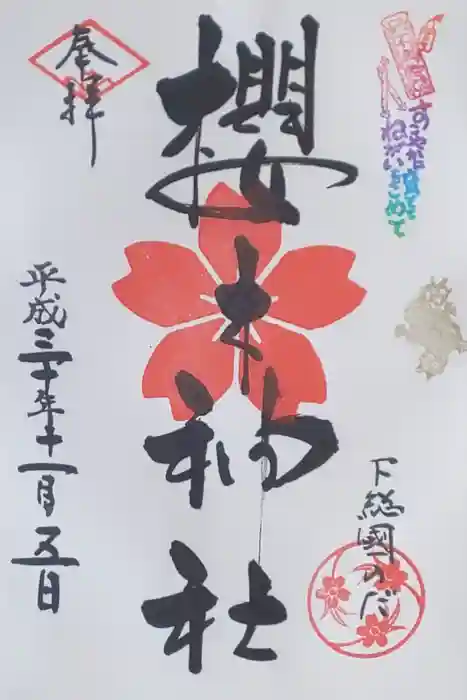 奉拝
櫻木神社
下総國のだ
平成三十年十一月五日
ねがいをこめて